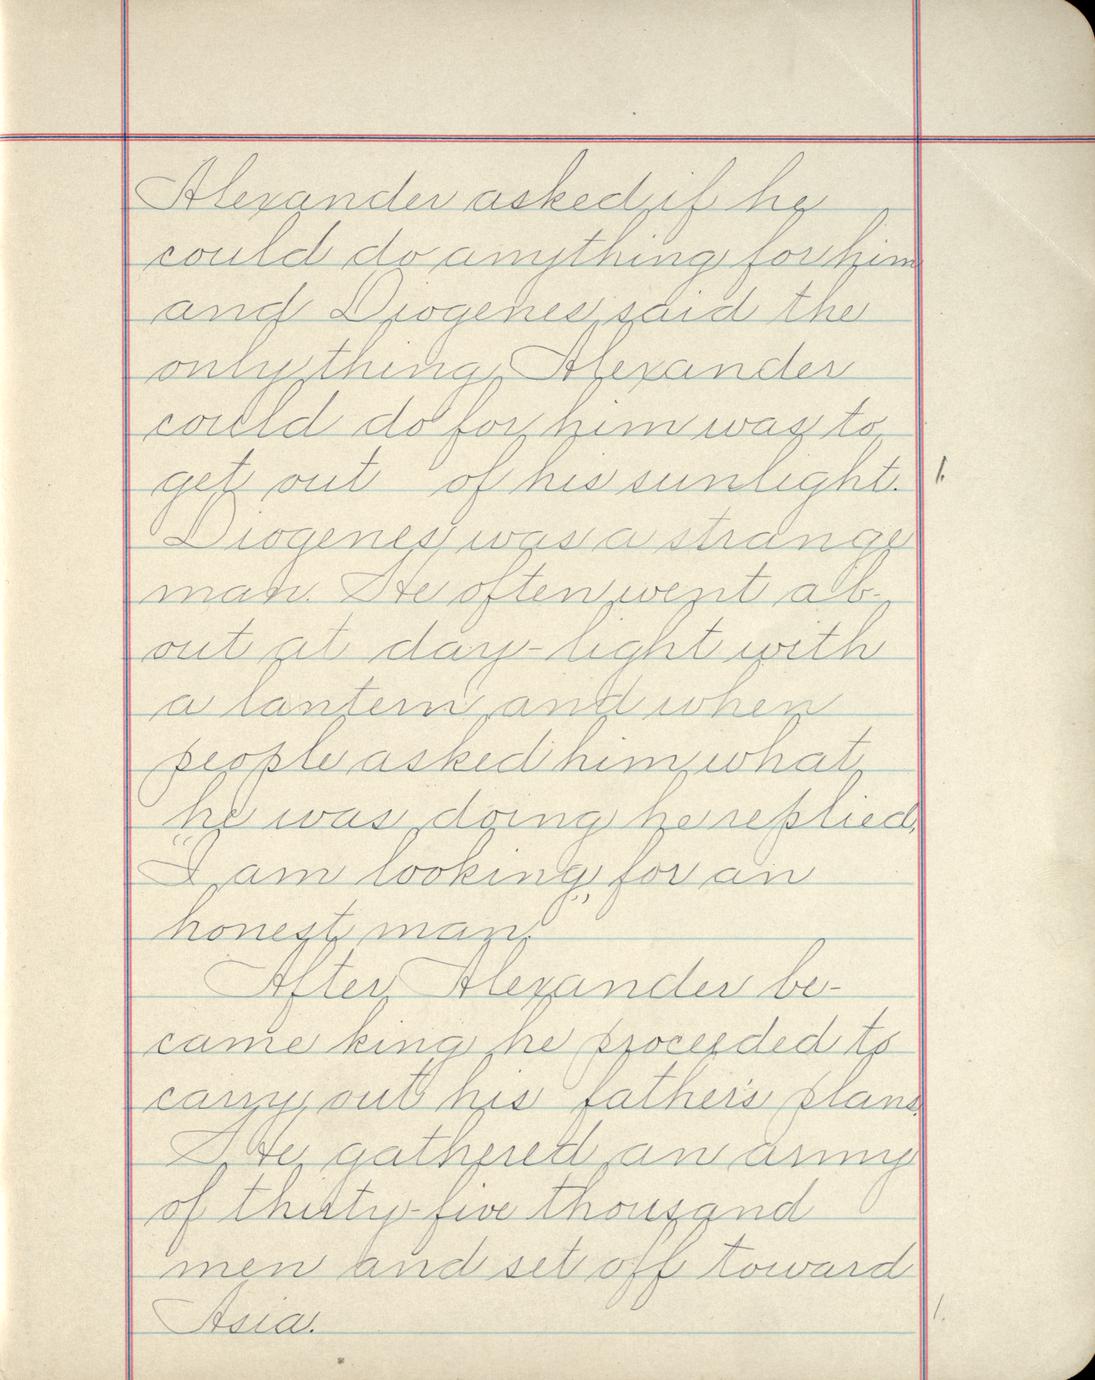 Alexander asked if he
could do anything for him
and Diogenes said the
only thing Alexander
could do for him was to
get out of his sunlight. 1.
Diogenes was a strange
man. He often went ab-
out at day-light with
a lantern and when
people asked him what
he was doing he replied,
"I am looking for an
honest man."
After Alexander be-
came king he proceeded to
carry out his father's plans.
He gathered an army
of thirty-five thousand
men and set off toward
Asia. 1.